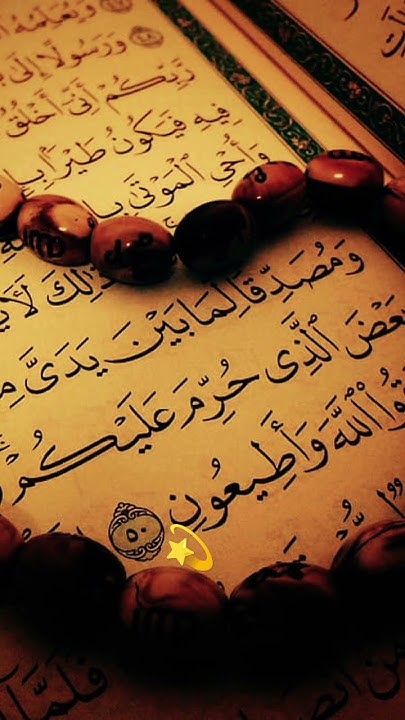 وَيُعَلِّمُهُ
٤٨ وَرَسُولًا إِلَىٰ
رَّبِّكُمْ أَنِّىٓ أَخْلُقُ
فِيهِ فَيَكُونُ طَيْرًۢا
وَأُحْىِ ٱلْمَوْتَىٰ
ذَٰلِكَ
وَمُصَدِّقًا لِّمَا بَيْنَ يَدَىَّ
بَعْضَ ٱلَّذِى حُرِّمَ عَلَيْكُمْ
ٱللَّهَ وَأَطِيعُونِ ٥٠
فَلَمَّآ